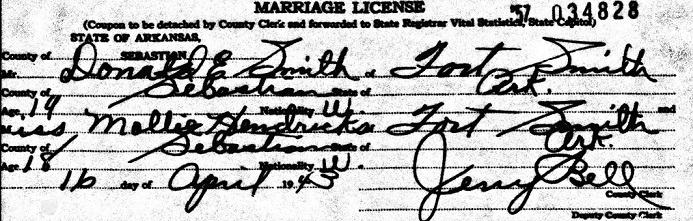 MARRIAGE LICENSE
'57 034828
(Coupon to be detached by County Clerk and forwarded to State Registrar Vital Statistics, State Capitol)
STATE OF ARKANSAS,
County of SEBASTIAN
Mr. Donald E Smith of Fort Smith
County of Sebastian State of Ark.
Age 19 Nationality W and
Miss Mollie Hendricks Fort Smith
County of Sebastian State of Ark.
Age 18 Nationality W
16 day of April 1943 Jerry Bell
County Clerk
Deputy County Clerk